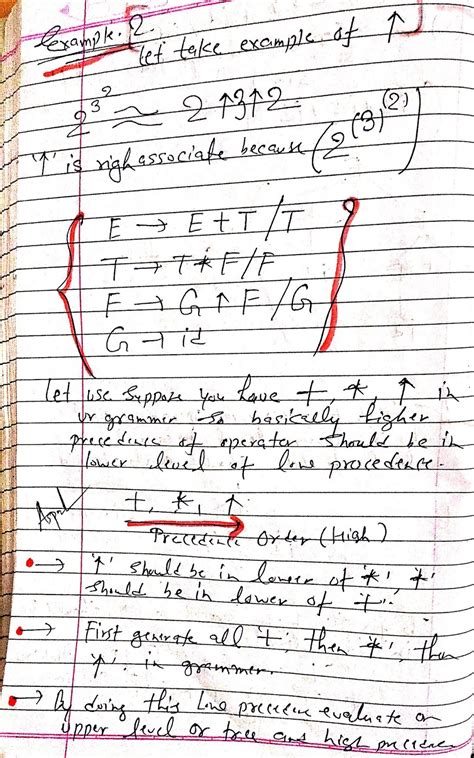 Example. 2
let take example of ↑
2^3^2 ≈ 2↑3↑2
'↑' is righassociate because (2^(3)^(2))
E → E+T/T
T → T*F/F
F → G↑F/G
G → id
Let use Suppose you have +, *, ↑ in
ur grammer so basically higher
precedence of operater should be in
lower level of low procedence.
+, *, ↑
Precedence Order (High)
→ '↑' should be in lower of '*', '*'
should be in lower of '+'.
→ First generate all '+', then '*', then
'↑' in grammer.
→ By doing this low precedence evaluate on
upper level or tree and high precedence